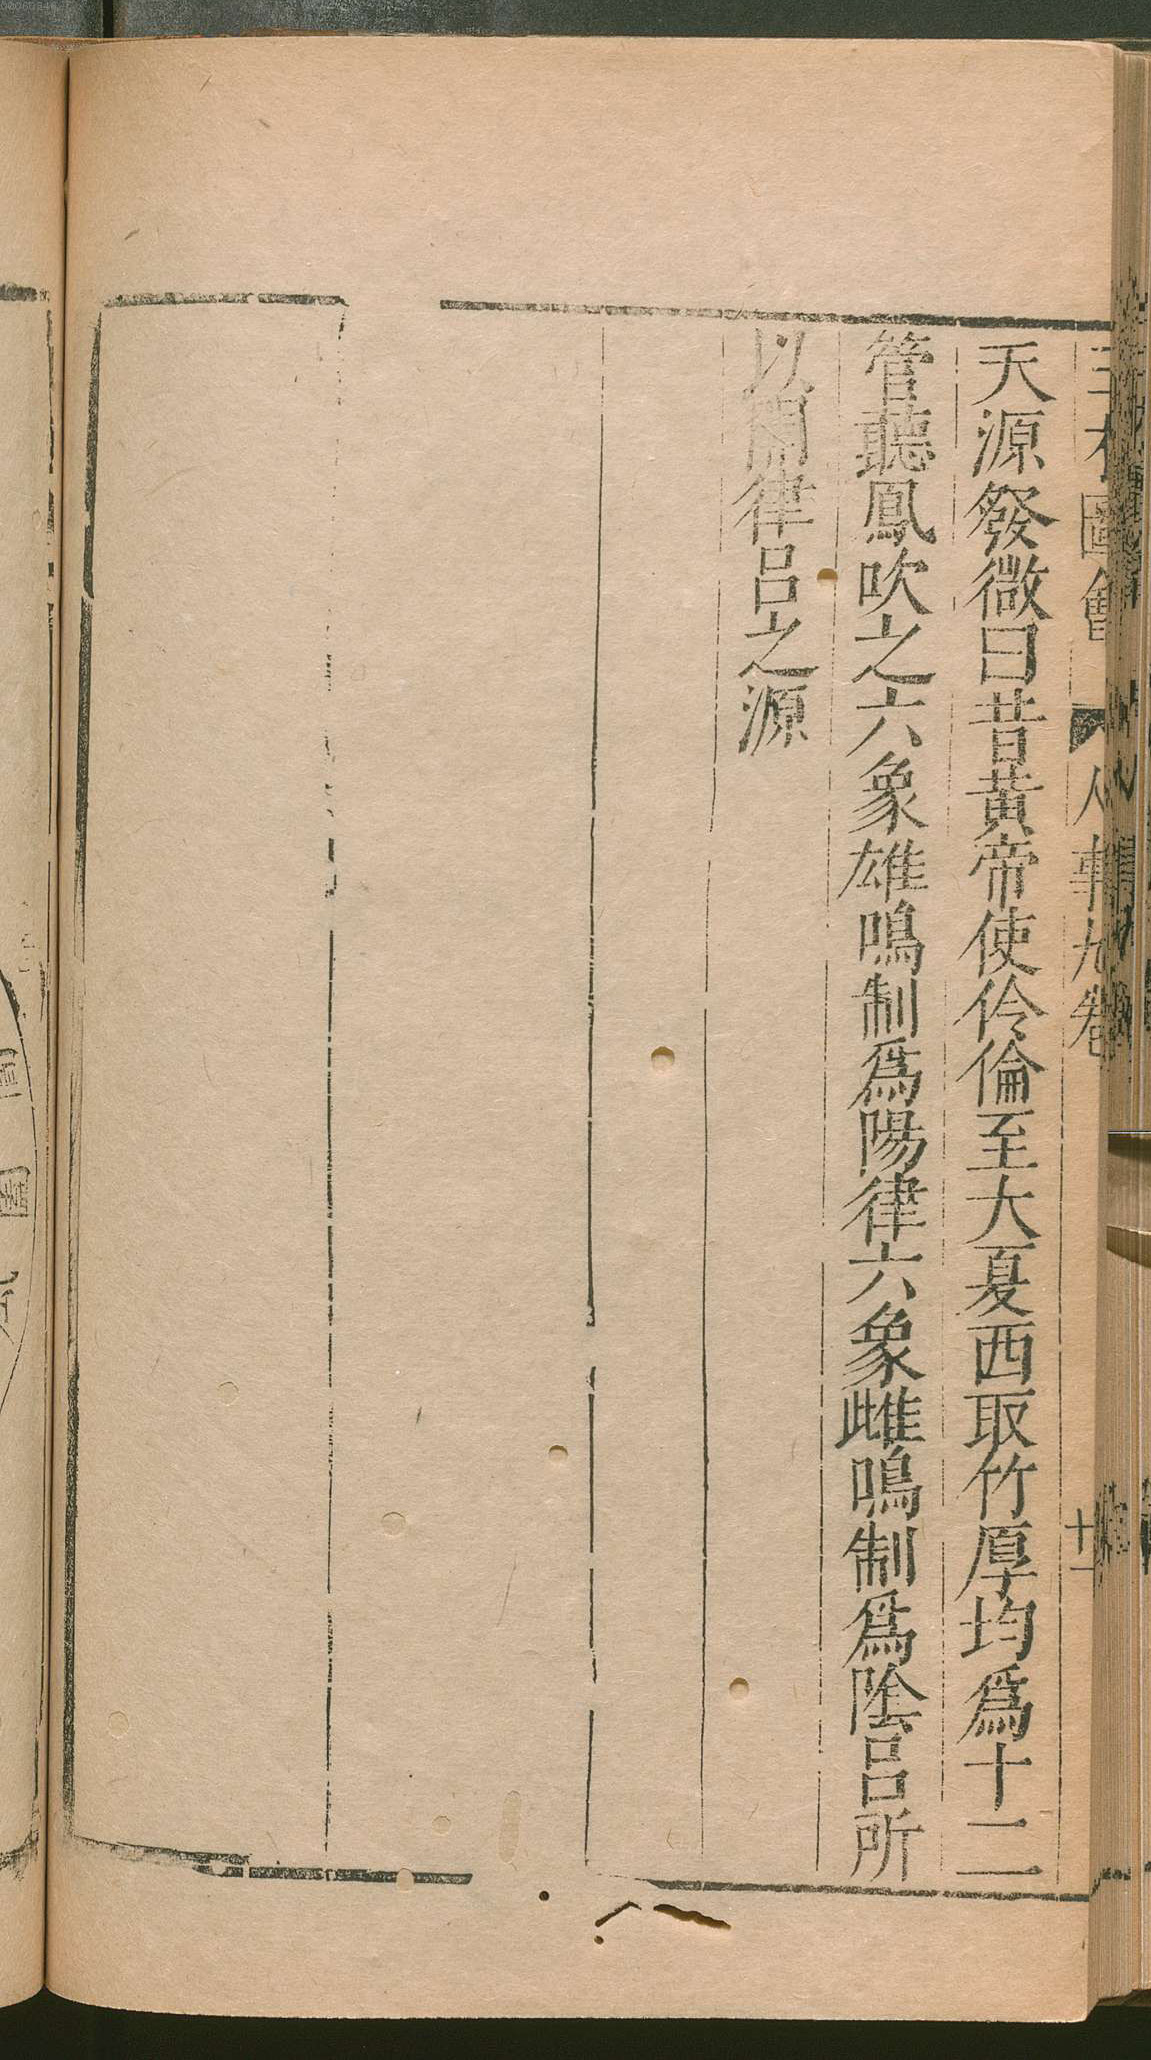 三才圖會 人事九卷 十一
天源發微曰昔黃帝使伶倫至大夏西取竹厚均爲十二
管聽鳳吹之六象雄鳴制爲陽律六象雌鳴制爲陰呂所
以開律呂之源